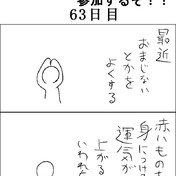 参加するぞ！！
63日目
最近
おまじない
とかを
よくする
赤いもの
身につけ
運気が
上がる
いわれ